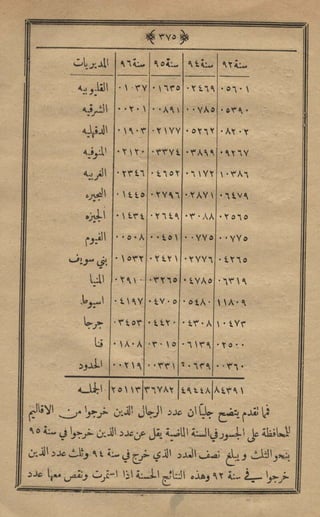 ٣٧٥
المديريات سنة٩٦ سنة٩٥ سنة٩٤ سنة٩٢
القليوبيه ٠١٠٣٧ ٠١٦٣٥ ٠٢٤٦٩ ٠٥٦٠١
الشرقيه ٠٠٢٠١ ٠٠٨٩١ ٠٠٧٨٥ ٠٥٣٩٠
الدقهليه ٠١٩٠٣ ٠٢١٧٧ ٠٥٢٦٢ ٠٨٢٠٢
المنوفيه ٠٢١٢٠ ٠٣٣٧٤ ٠٣٨٩٩ ٠٩٢٦٧
الغربيه ٠٢٣٤٦ ٠٤٦٥٢ ٠٦١٧٢ ١٠٣٨٦
البحيره ٠١٤٤٥ ٠٢٧٩٦ ٠٢٨٧١ ٠٦٤٧٩
الجيزه ٠١٤٣٤ ٠٢٦٤٩ ٠٣٠٨٨ ٠٢٥٦٥
الفيوم ٠٠٥٠٨ ٠٠٤٥١ ٠٠٧٧٥ ٠٠٧٧٥
بني سويف ٠١٥٣٢ ٠٢٤٢١ ٠٢٧٧٦ ٠٤٢٦٥
المنيا ٠٢٩١٠ ٠٣٢٦٥ ٠٤٧٨٥ ٠٦٣١٩
اسيوط ٠٤١٩٧ ٠٤٧٠٥ ٠٥٤٨٠ ١١٨٠٩
جرجا ٠٣٤٥٣ ٠٤٤٢٠ ٠٤٣٠٨ ١٠٤٧٣
قنا ٠١٨٠٨ ٠٣٠١٥ ٠٦١٣٩ ٠٢٥٠٠
الحدود ٠٠٢١٩ ٠٠٣٣١ ٠٠٦٣٩ ٠٠٣٦٠
الجمله ٢٥١١٣ ٣٦٧٨٢ ٤٩٤٤٨ ٨٤٣٩١
فما تقدم يتضح جليا ان عدد الرجال الذين خرجوا من الاقاليم
للمحافظة على الجسور في السنة الماضية يقل عن عدد الذين خرجوا في سنة ٩٥
بنحو الثلث و يبلغ نصف العدد الذي خرج في سنة ٩٤ وثلث عدد الذين
خرجوا في سنة ٩٢ وهذه النتائج الحسنة اذا استمرت ونقص معها عدد